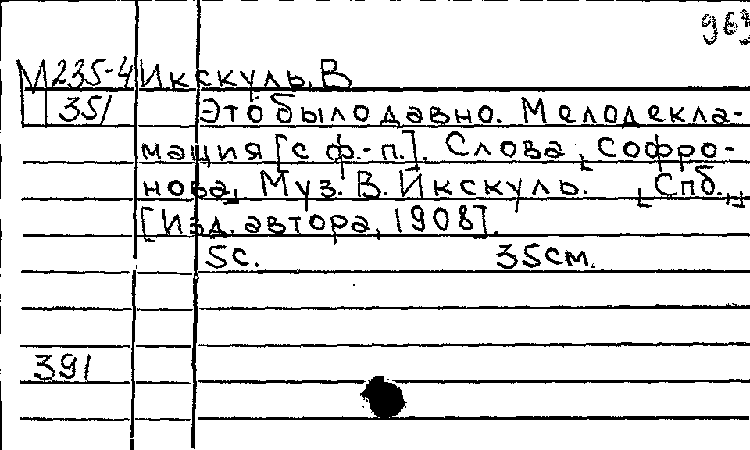 969
М 235-4 Икскуль, В
351 Это было давно. Мелодекла-
мация [с ф.-п.]. Слова Софро-
нова, Муз. В. Икскуль. Спб.,
[Изд. автора, 1908].
5с. 35см.
391